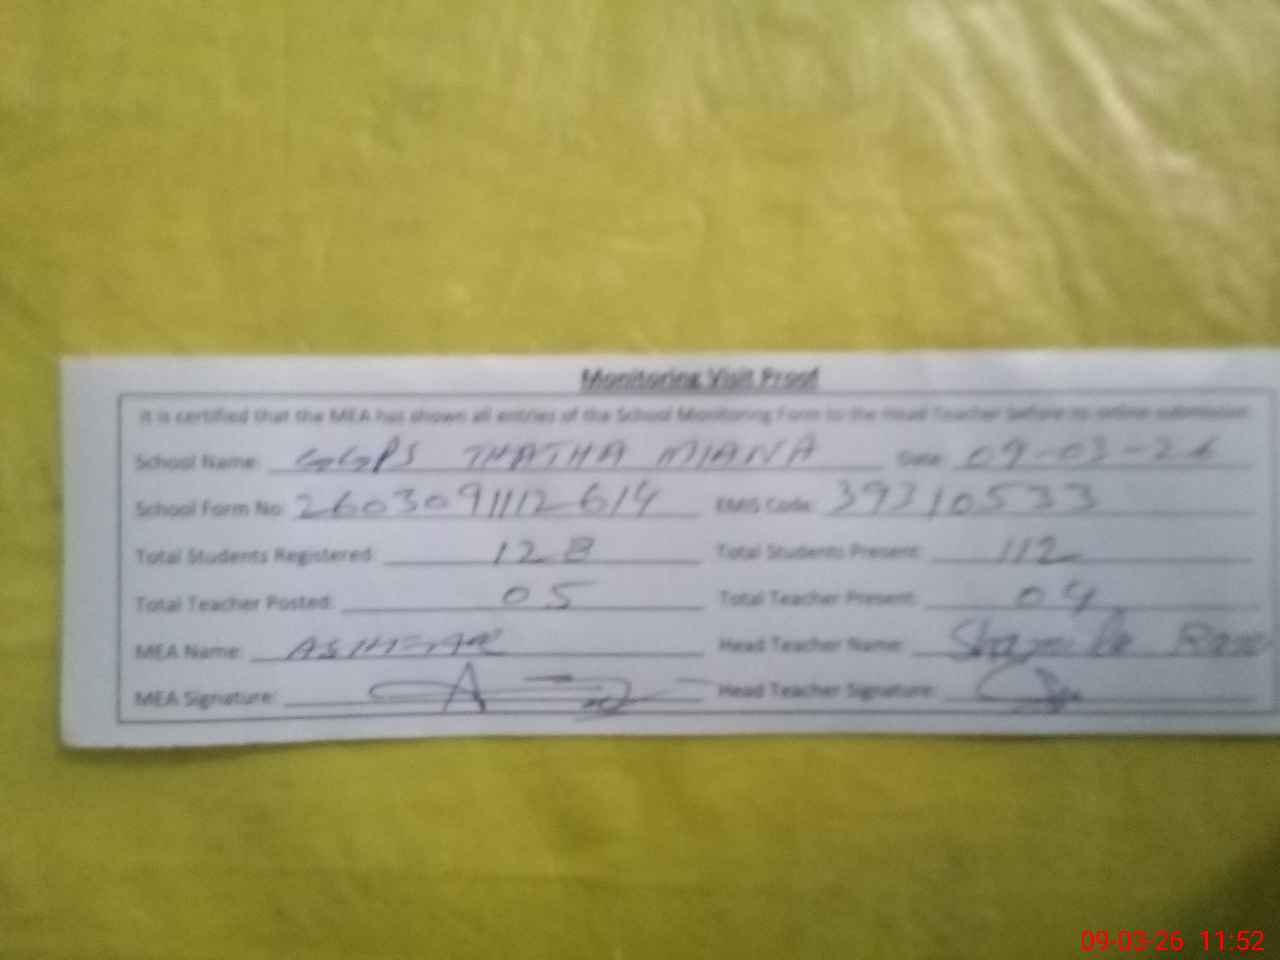 Monitoring Visit Proof
It is certified that the MEA has shown all entries of the School Monitoring Form to the Head Teacher before its online submission
School Name: GGPS THATHA MIANA Date: 09-03-26
School Form No: 26030911112614 EMIS Code: 39310533
Total Students Registered: 128 Total Students Present: 112
Total Teacher Posted: 05 Total Teacher Present: 04
MEA Name: Head Teacher Name:
MEA Signature: Head Teacher Signature:
09-03-26 11:52